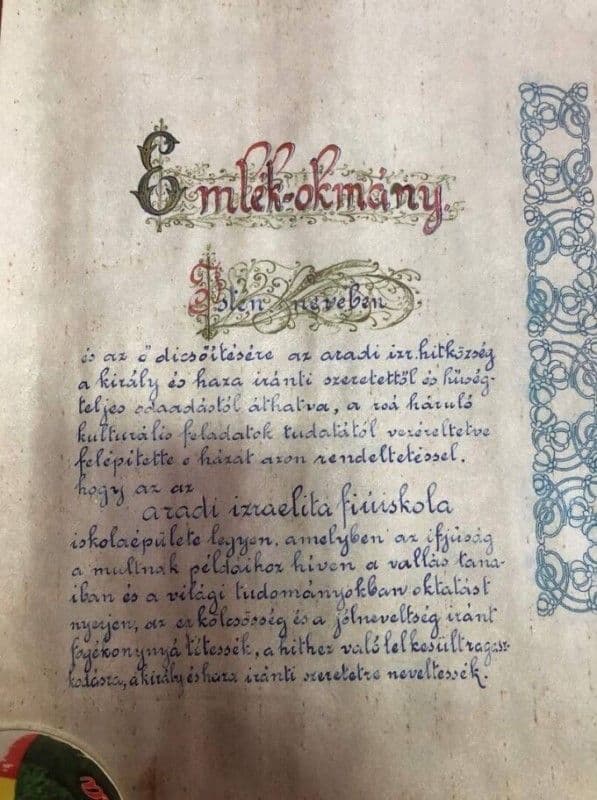 Emlék-okmány.
Isten nevében
és az ő dicsőítésére az aradi izr. hitközség
a király és haza iránti szeretettől és hűség-
teljes odaadástól áthatva, a reá háruló
kulturális feladatok tudatától vezéreltetve
felépítette e házat azon rendeltetéssel.
hogy az az
aradi izraelita fiúiskola
iskolaépülete legyen, amelyben az ifjúság
a multnak példáihoz híven a vallás tana-
iban és a világi tudományokban oktatást
nyerjen, az erkölcsösség és a jólneveltség iránt
fogékonynyá tétessék, a hithez való lelkesült ragasz-
kodásra, a király és haza iránti szeretetre neveltessék.